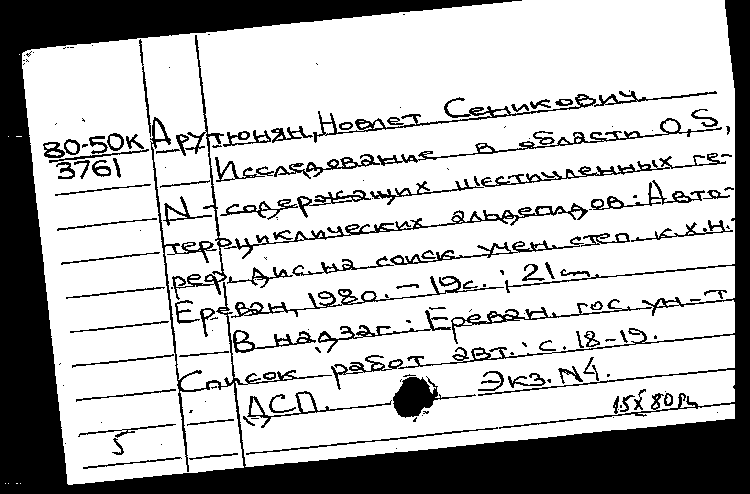 80-50К Арутюнян, Новлет Сеникович.
3761
Исследование в области O, S,
N-содержащих шестичленных ге-
тероциклических альдегидов: Авто-
реф. дис. на соиск. учен. степ. к.х.н.-
Ереван, 1980. - 19с.; 21 см.
В надзаг.: Ереван. гос. ун-т
Список работ авт.: с. 18-19.
ДСП. Экз. N4.
5 15X80